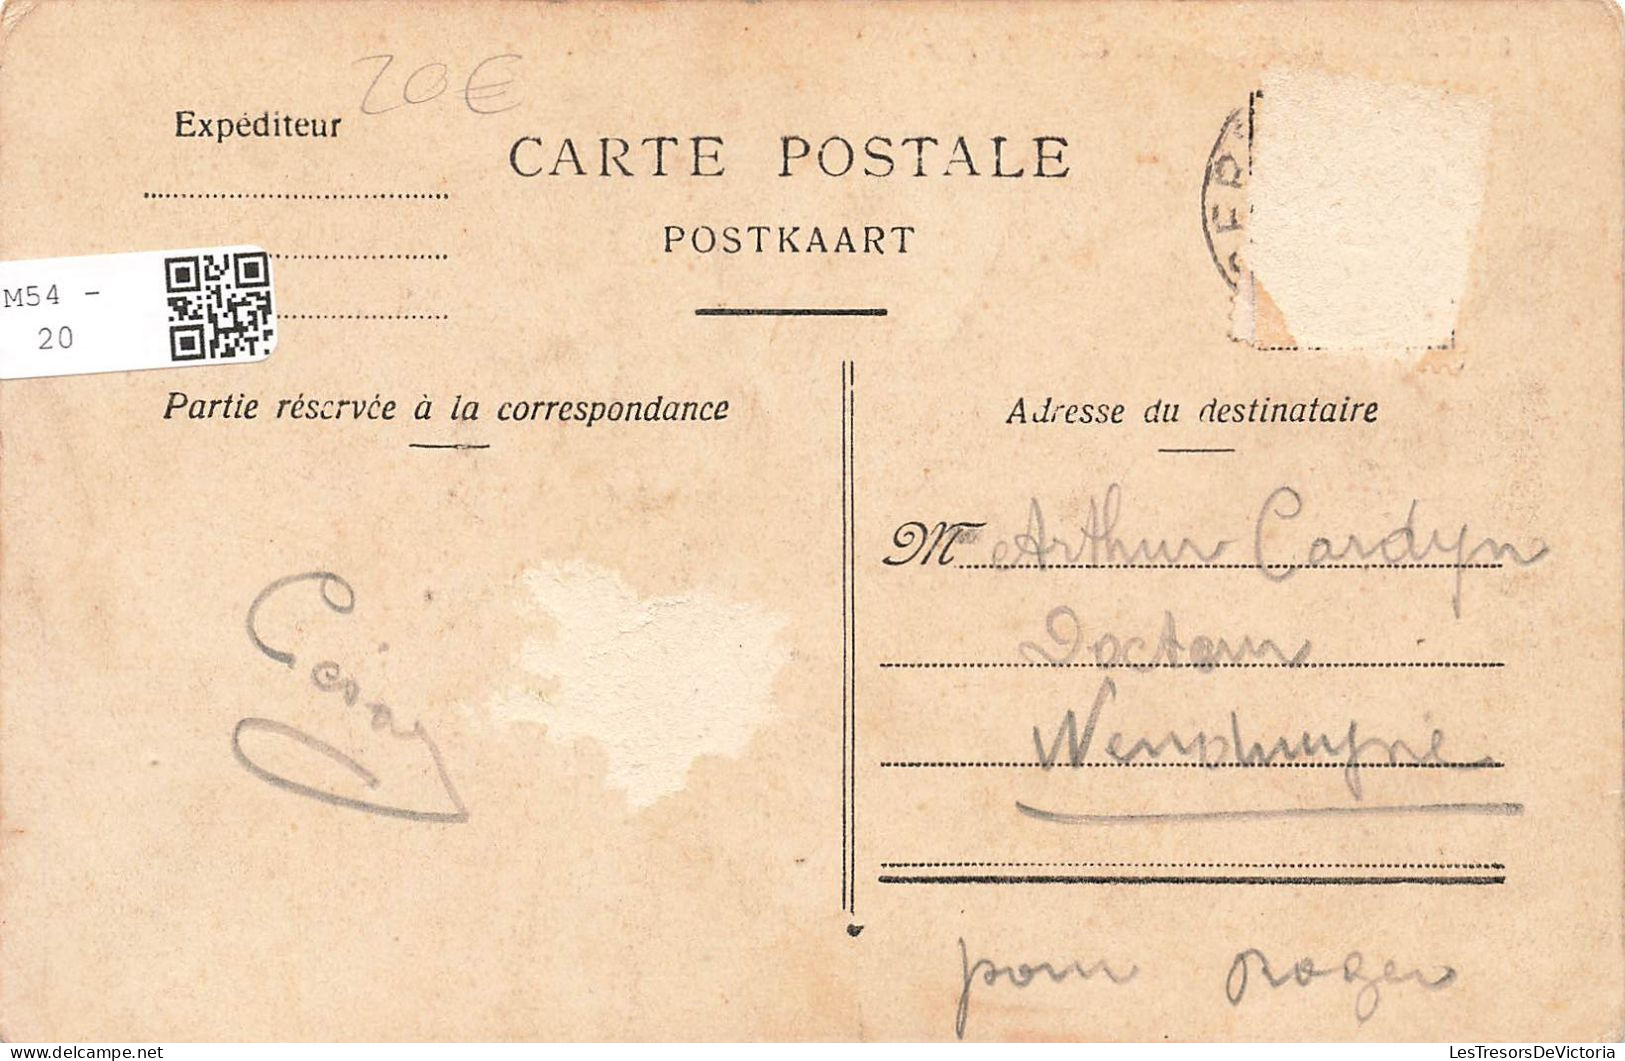 20€
Expéditeur
CARTE POSTALE
POSTKAART
M54 -
20
Partie réservée à la correspondance
Adresse du destinataire
M Arthur Cardyn
Docteur
Wenduyne
pour Roger
LesTresorsDeVictoria